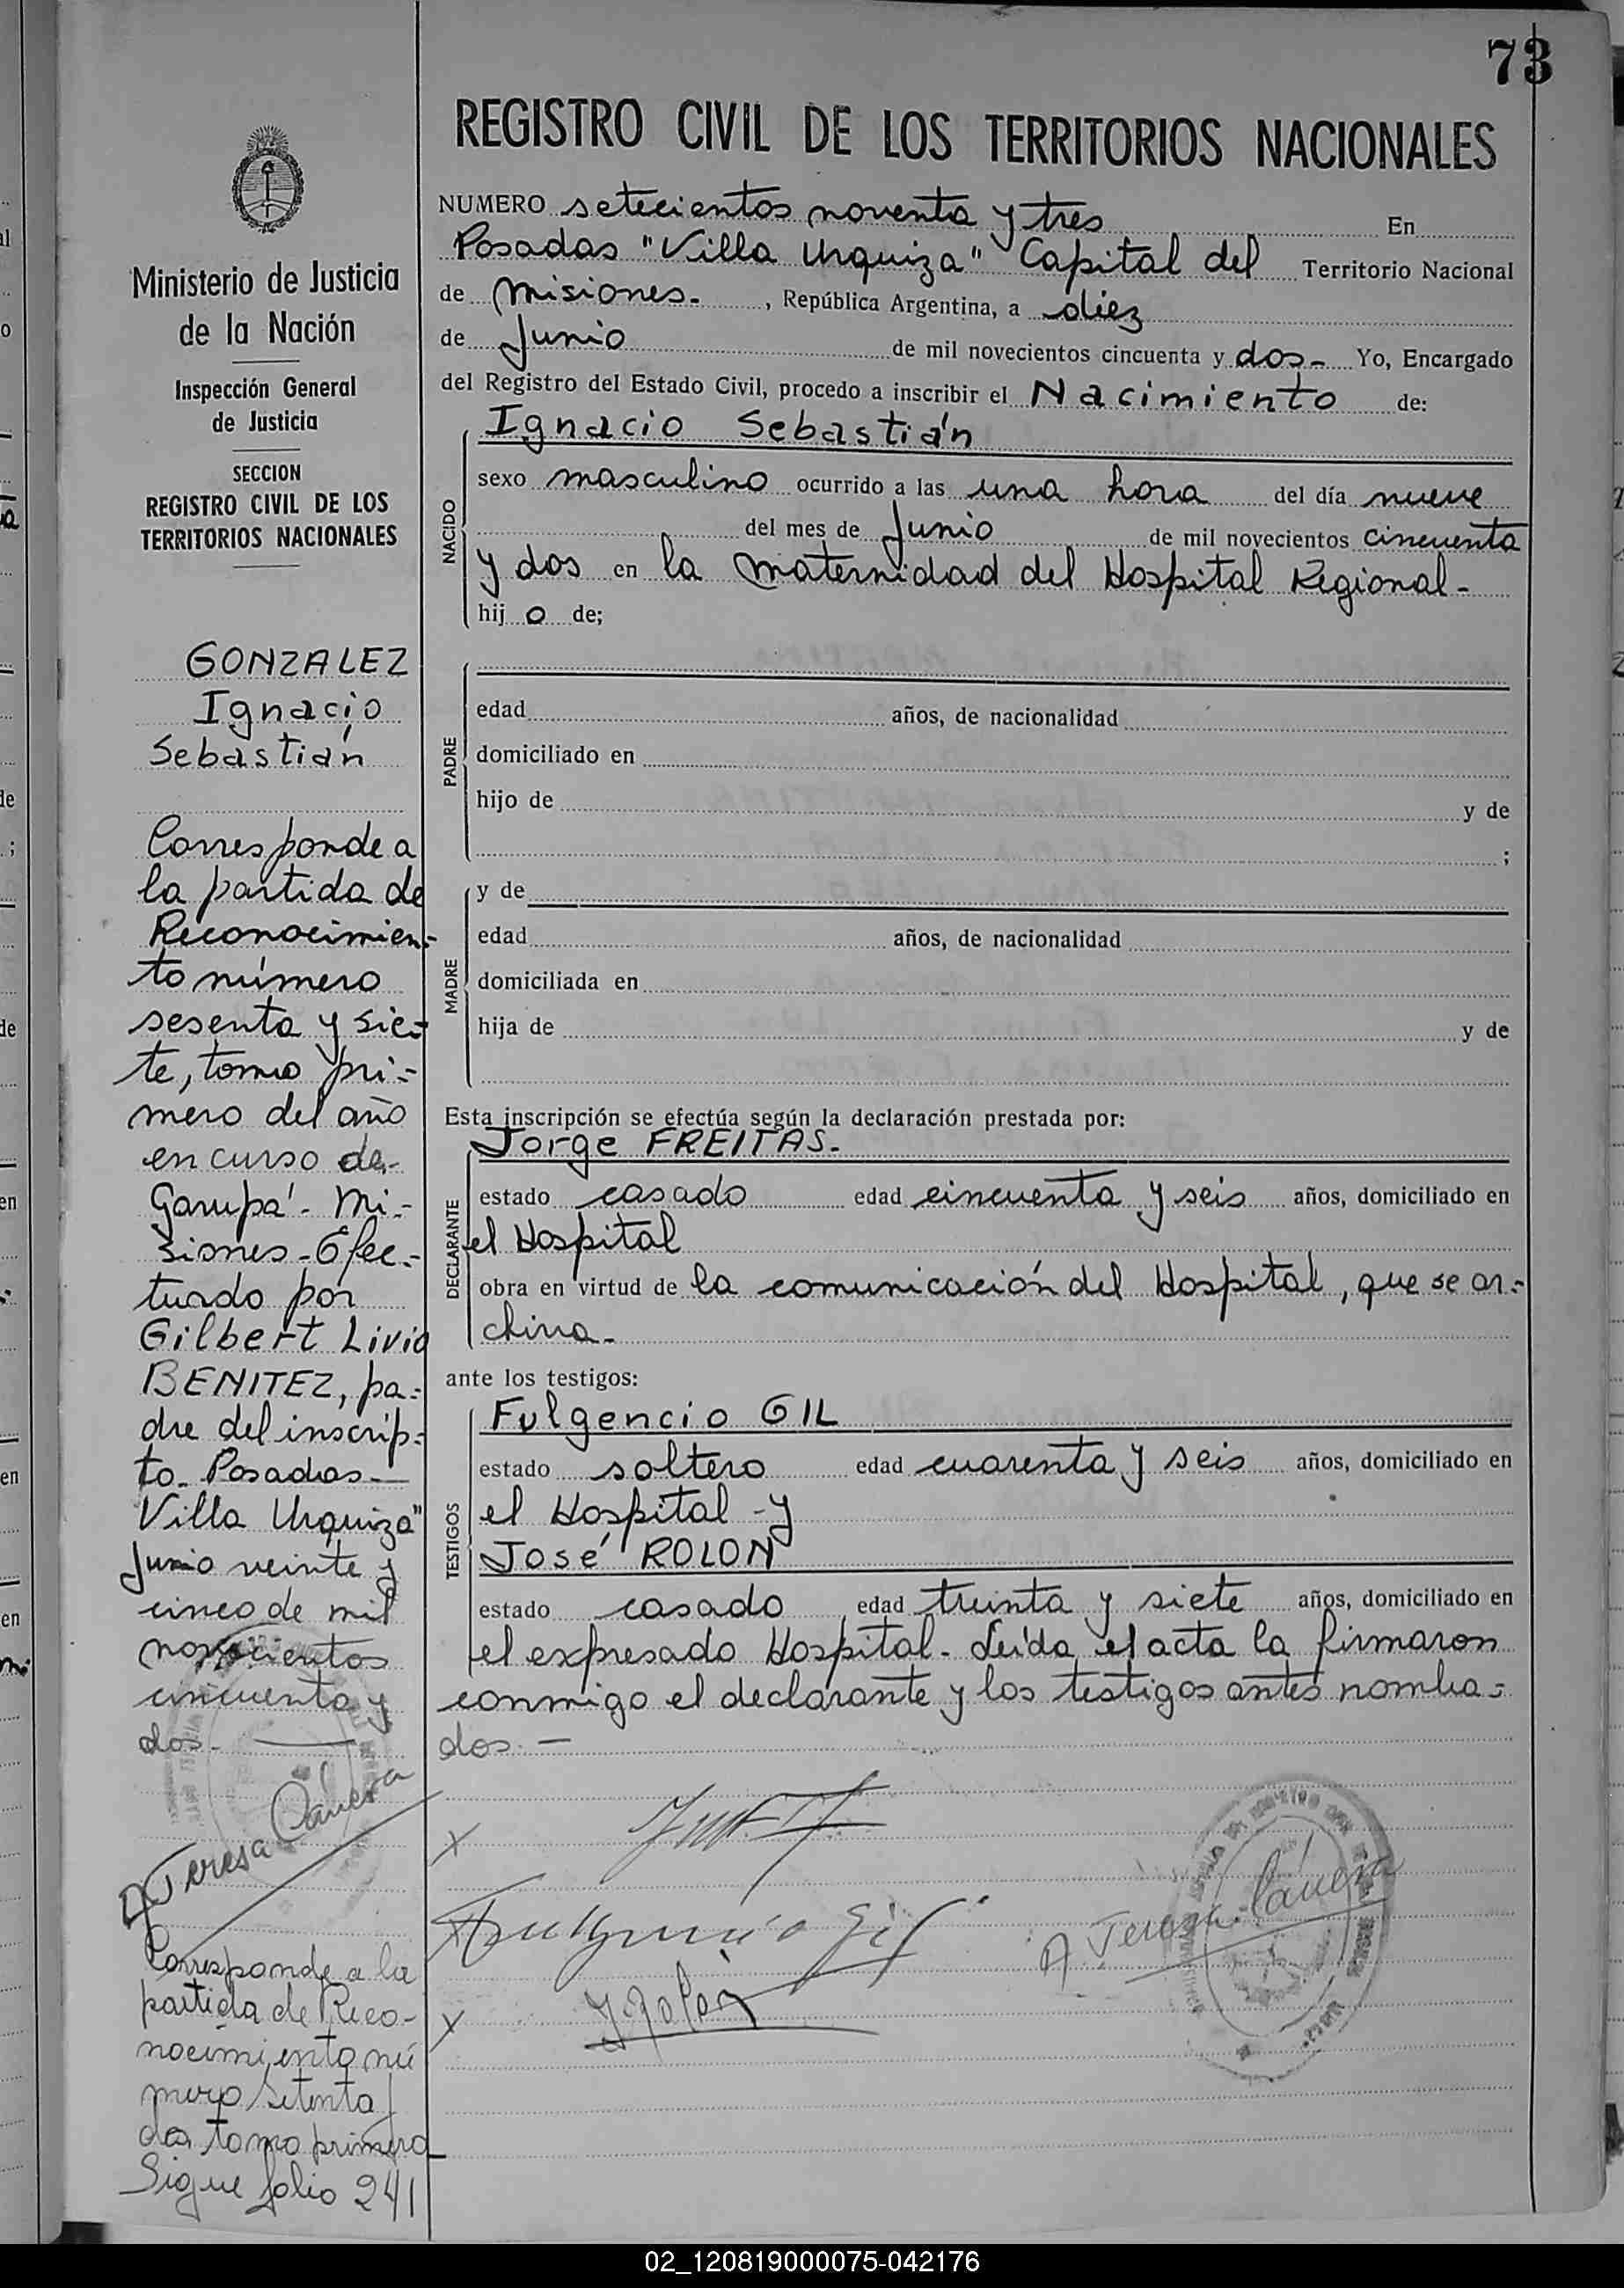 73
REGISTRO CIVIL DE LOS TERRITORIOS NACIONALES
Ministerio de Justicia
de la Nación
Inspección General
de Justicia
SECCION
REGISTRO CIVIL DE LOS
TERRITORIOS NACIONALES
GONZALEZ
Ignacio
Sebastián
Corresponde a
la partida de
Reconocimien-
to número
sesenta y sie-
te, tomo pri-
mero del año
en curso de
Garupá - Mi-
siones - Efec-
tuado por
Gilbert Livio
BENITEZ, pa-
dre del inscrip-
to. Posadas
Villa Urquiza"
Junio veinte y
cinco de mil
novecientos
cincuenta y
dos.
Teresa
Corresponde a la
partida de Reco-
nocimiento nú
mero Setenta y
dos tomo primero
Sigue folio 241
NUMERO setecientos noventa y tres En
Posadas "Villa Urquiza" Capital del Territorio Nacional
de Misiones. , República Argentina, a diez
de Junio de mil novecientos cincuenta y dos- Yo, Encargado
del Registro del Estado Civil, procedo a inscribir el Nacimiento de:
NACIDO
Ignacio Sebastián
sexo masculino ocurrido a las una hora del día nueve
del mes de Junio de mil novecientos cincuenta
y dos en la Maternidad del Hospital Regional-
hij o de;
PADRE
edad años, de nacionalidad
domiciliado en
hijo de y de
;
MADRE
y de
edad años, de nacionalidad
domiciliada en
hija de y de
Esta inscripción se efectúa según la declaración prestada por:
DECLARANTE
Jorge FREITAS.
estado casado edad cincuenta y seis años, domiciliado en
el Hospital
obra en virtud de la comunicación del Hospital, que se ar-
chiva-
ante los testigos:
TESTIGOS
Fulgencio GIL
estado soltero edad cuarenta y seis años, domiciliado en
el Hospital - y
José ROLON
estado casado edad treinta y siete años, domiciliado en
el expresado Hospital. Leída el acta la firmaron
conmigo el declarante y los testigos antes nombra-
dos. -
Fulgencio Gil
J. Rolón
A. Teresa
02_120819000075-042176